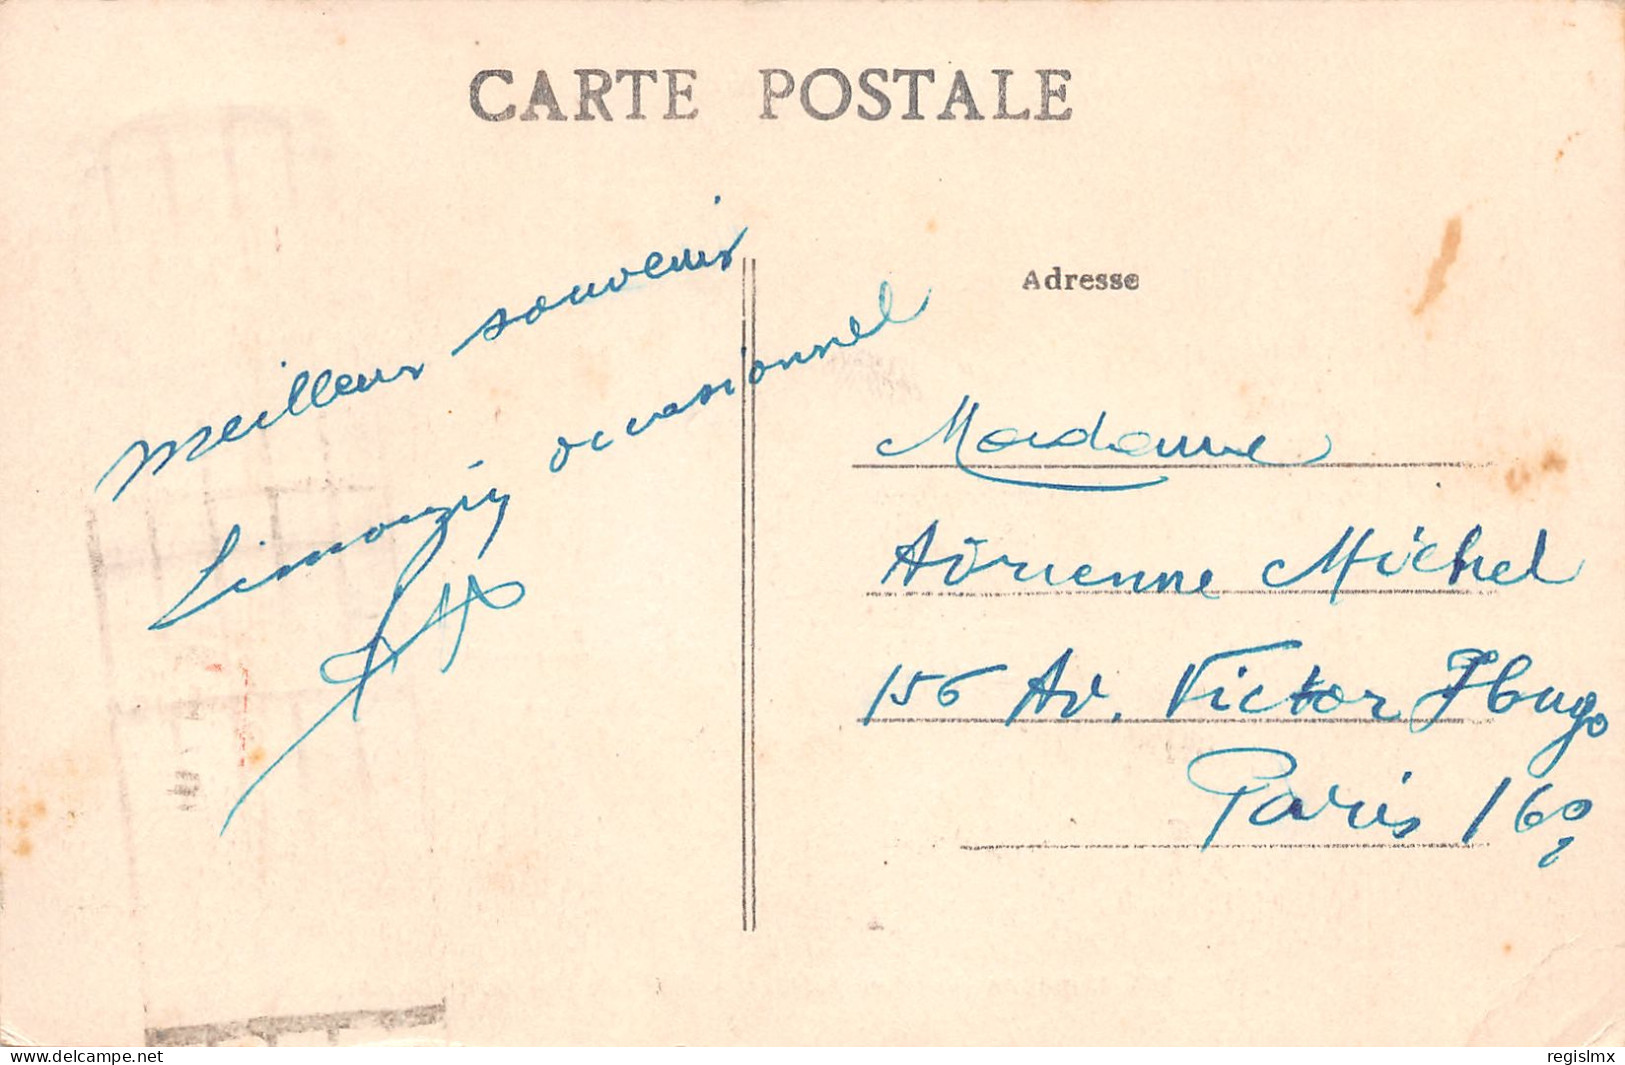 CARTE POSTALE
Meilleur souvenir
Limousin occasionnel
Adresse
Madame
Adrienne Michel
156 Av. Victor Hugo
Paris 16e
delcampe.net
regislmx